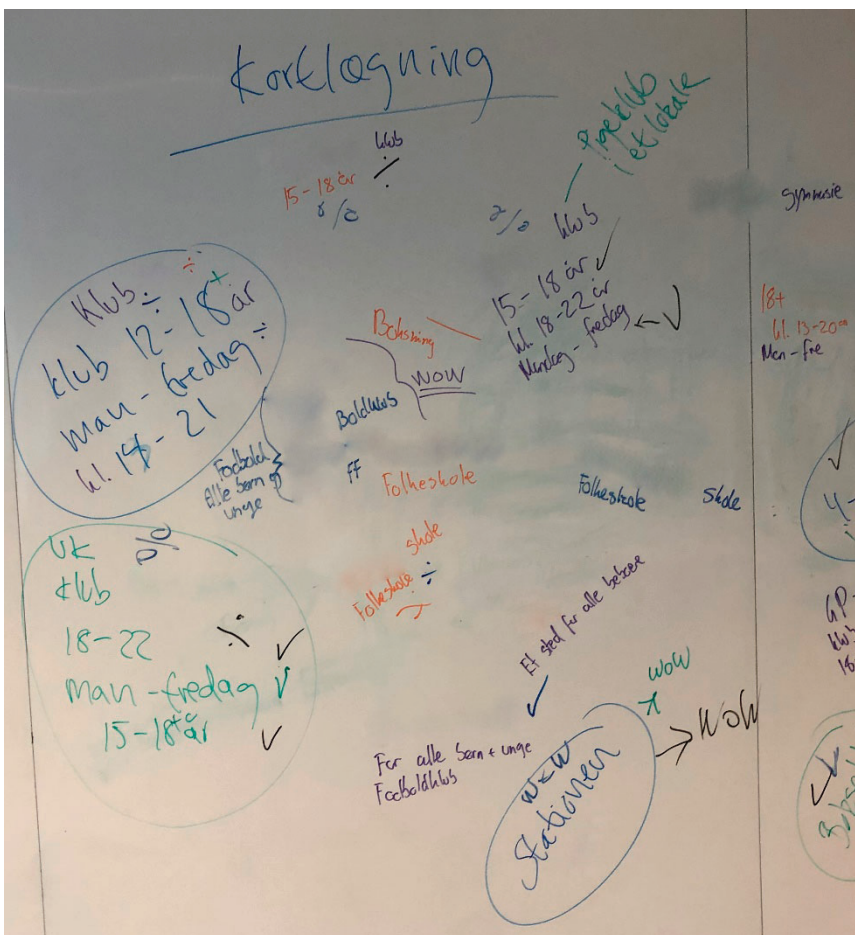 Kortlægning
klub
15-18 år
÷
%
Pigeklub
i et lokale
%
klub
15-18 år
kl. 18-22
Mandag - fredag
Gymnasie
18+
Man - fre
Klub ÷ ÷
klub 12-18+ år
man - fredag ÷
kl. 14 - 21
Boksning
WOW
Boldklub
Fodbold
Alle børn og
unge
FF
Folkeskole
Folkeskole
Skole
skole
Folkeskole ÷
UK
%
klub
18-22
man - fredag
15-18+ år
Et sted for alle beboere
For alle børn + unge
Fodboldklub
WOW
Stationen
WOW
WOW
4-